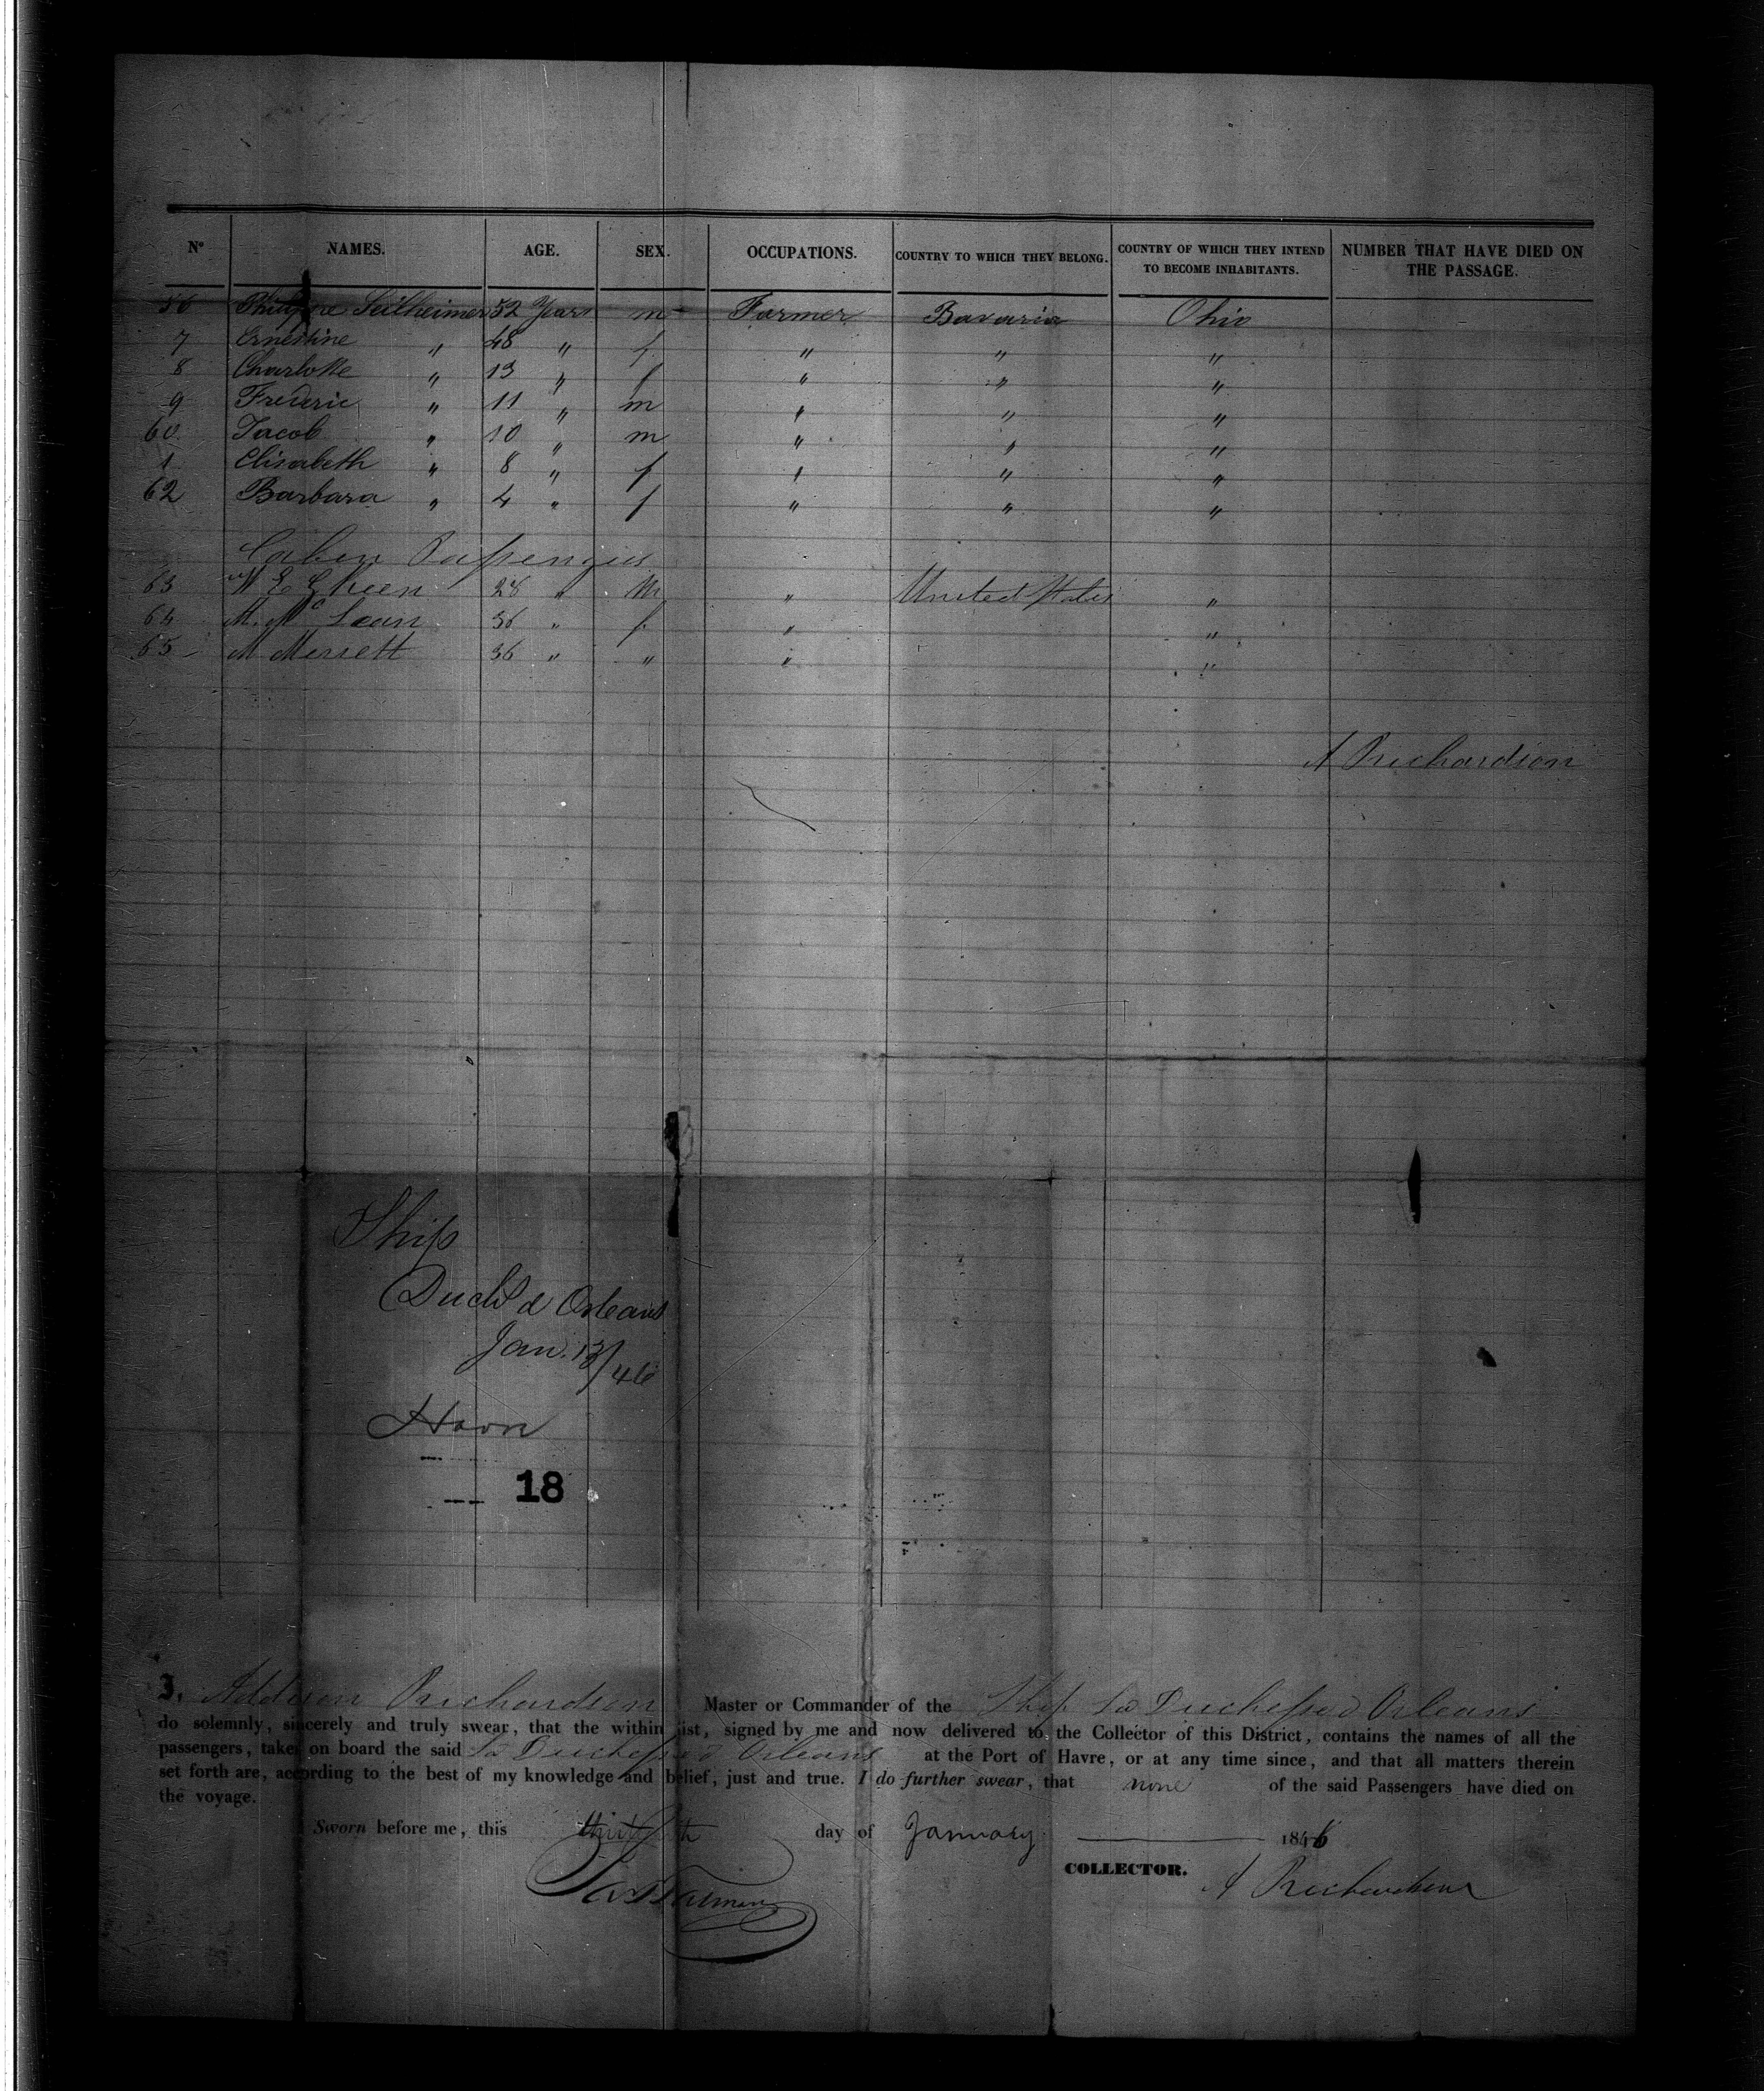 Nº NAMES. AGE. SEX. OCCUPATIONS. COUNTRY TO WHICH THEY BELONG. COUNTRY OF WHICH THEY INTEND TO BECOME INHABITANTS. NUMBER THAT HAVE DIED ON THE PASSAGE.
56 Seilheimer 52 Years m Farmer Bavaria Ohio
7 Ernestine " 48 " f " " "
8 Charlotte " 13 " f " " "
9 Frederic " 11 " m " " "
60 Jacob " 10 " m " " "
1 Elisabeth " 8 " f " " "
62 Barbara " 4 " f " " "
Cabin Passengers
63 E Green 28 " M " United States "
64 M. Mc Lean 36 " f. " "
65 M Merrett 36 " " " "
A Richardson
Ship
Duchs d Orleans
Jan. 13/46
Havre
18
I, Addison Richardson Master or Commander of the Ship La Duchesse d Orleans
do solemnly, sincerely and truly swear, that the within list, signed by me and now delivered to the Collector of this District, contains the names of all the
passengers, taken on board the said La Duchesse d Orleans at the Port of Havre, or at any time since, and that all matters therein
set forth are, according to the best of my knowledge and belief, just and true. I do further swear, that none of the said Passengers have died on
the voyage.
Sworn before me, this thirteenth day of January 1846
COLLECTOR.
A Richardson